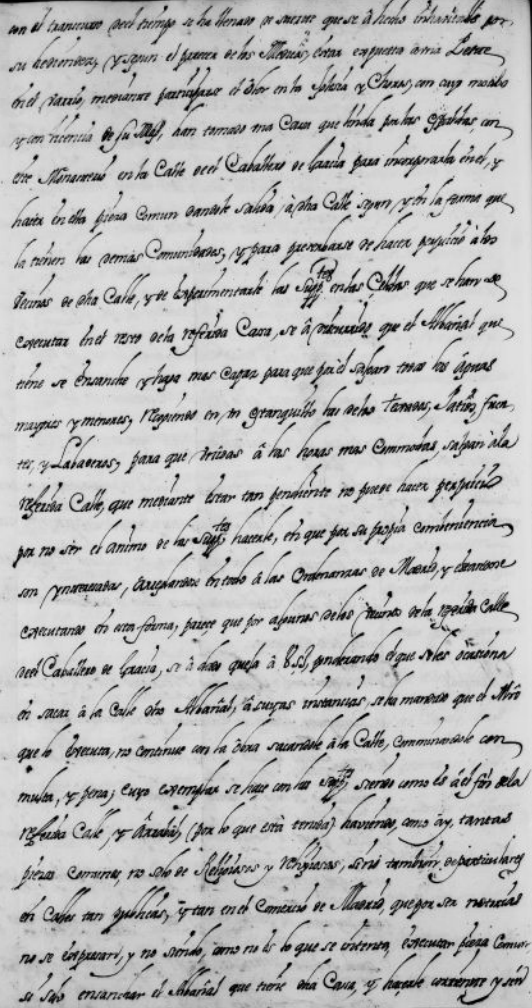 con el transcurso del tiempo se ha llenado de suerte que se á hecho inhabitable por
su hediondez, y segun el parecer de los Medicos, estar expuesta a una Peste
en el varrio, mediante participarse el olor en la Iglesia y Choro, con cuyo motibo
y con licencia de su Magd, han tomado una Casa que linda por las espaldas, con
este Monasterio en la Calle del Caballero de Gracia para incorporarla en el, y
hacer en ella pieza comun dandole salida, á dha Calle segun, y en la forma que
la tienen las demas Comunidades, y para precaberse de hacer perjuicio á los
Vecinos de dha Calle, y de experimentarle las Suptes en las Celdas que se han de
executar en el resto de la referida Casa, se á discurrido que el Albañal que
tiene se ensanche y haga mas capaz para que por el salgan todas las aguas
mayores y menores, recogiendo en un estanquillo las de los terrados, Patios, fuen
tes, y Labaderos, para que unidas á las horas mas commodas, salgan á la
referida Calle, que mediante estar tan pendiente no puede hacer perjuicio
por no ser el animo de las Suptes hacerle, en que por su propia combeniencia
son ynteresadas, arreglandose en todo á las Ordenanzas de Madrid, y estandose
executando en esta forma, parece que por algunos de los vecinos de la referida Calle
del Caballero de Gracia, se á dado quexa á V.S.I, ponderando el que se les ocasiona
en sacar á la Calle dho Albañal, á cuyas instancias, se ha mandado que el Mro
que lo executa, no continue con la obra sacandole á la Calle, comminandole con
multa, y pena; cuyo exemplar se hace con las Suptes siendo como es á el fin de la
referida Calle, y Arrabal, (por lo que está tenida) haviendo, como ay, tantas
piezas comunes, no solo de Religiosos y Religiosas, sino tambien de particulares
en Calles tan publicas, y tan en el Comercio de Madrid, que por ser notorias
no se expresan, y no siendo, como no es lo que se intenta, executar pieza Comun
si solo ensanchar el Albañal que tiene dha Casa, y hacerle corriente y sin